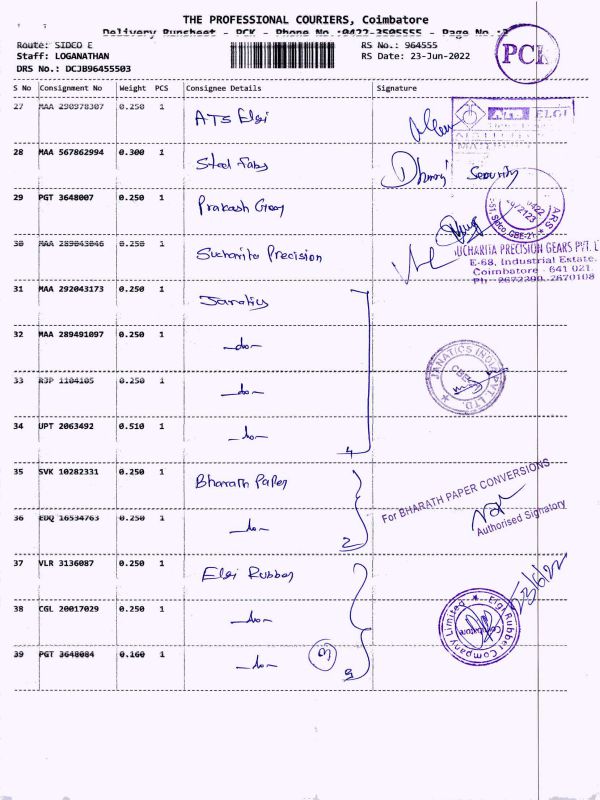 THE PROFESSIONAL COURIERS, Coimbatore
Delivery Runsheet - PCK - Phone No.:0422-3505555 - Page No.:
PCK
Route: SIDCO E
RS No.: 964555
Staff: LOGANATHAN
RS Date: 23-Jun-2022
DRS No.: DCJB96455503
S No Consignment No Weight PCS Consignee Details Signature
27 MAA 290978307 0.250 1 ATS Elgi
ELGI
28 MAA 567862994 0.300 1 Steel Fabs
Security
29 PGT 3648007 0.250 1 Prakash Gears
30 MAA 289043046 0.250 1 Sucharita Precision
SUCHARITA PRECISION GEARS PVT. L
E-68, Industrial Estate.
Coimbatore - 641 021.
Ph : 2672200, 2670108
31 MAA 292043173 0.250 1 Janatics
32 MAA 289491097 0.250 1 -do-
JANATICS INDIA PVT. LTD.
CBE
33 RJP 1104105 0.250 1 -do-
34 UPT 2063492 0.510 1 -do-
4
35 SVK 10282331 0.250 1 Bharath Paper
For BHARATH PAPER CONVERSIONS
Authorised Signatory
36 EDQ 16534763 0.250 1 -do-
2
37 VLR 3136087 0.250 1 Elgi Rubber
23/6/22
38 CGL 20017029 0.250 1 -do-
Elgi Rubber Company Limited
Coimbatore
39 PGT 3648084 0.160 1 -do-
3